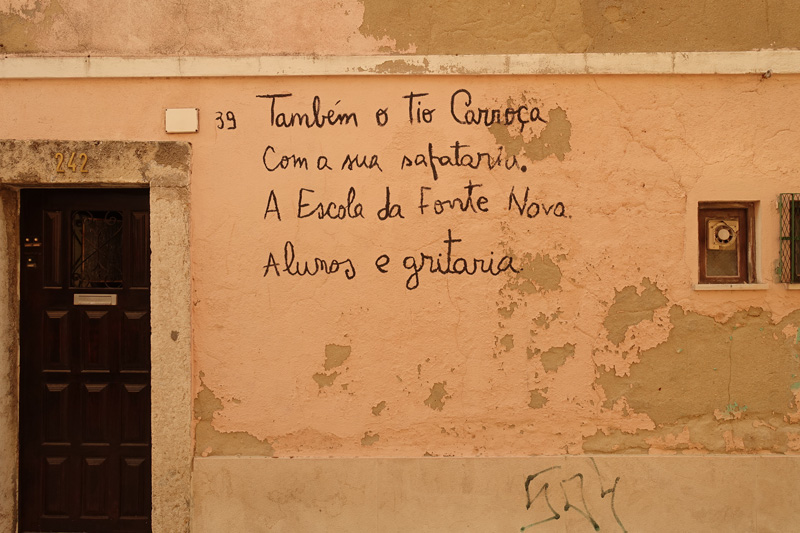 39 Também o Tio Carroça
Com a sua sapataria.
A Escola da Fonte Nova.
Alunos e gritaria.
242